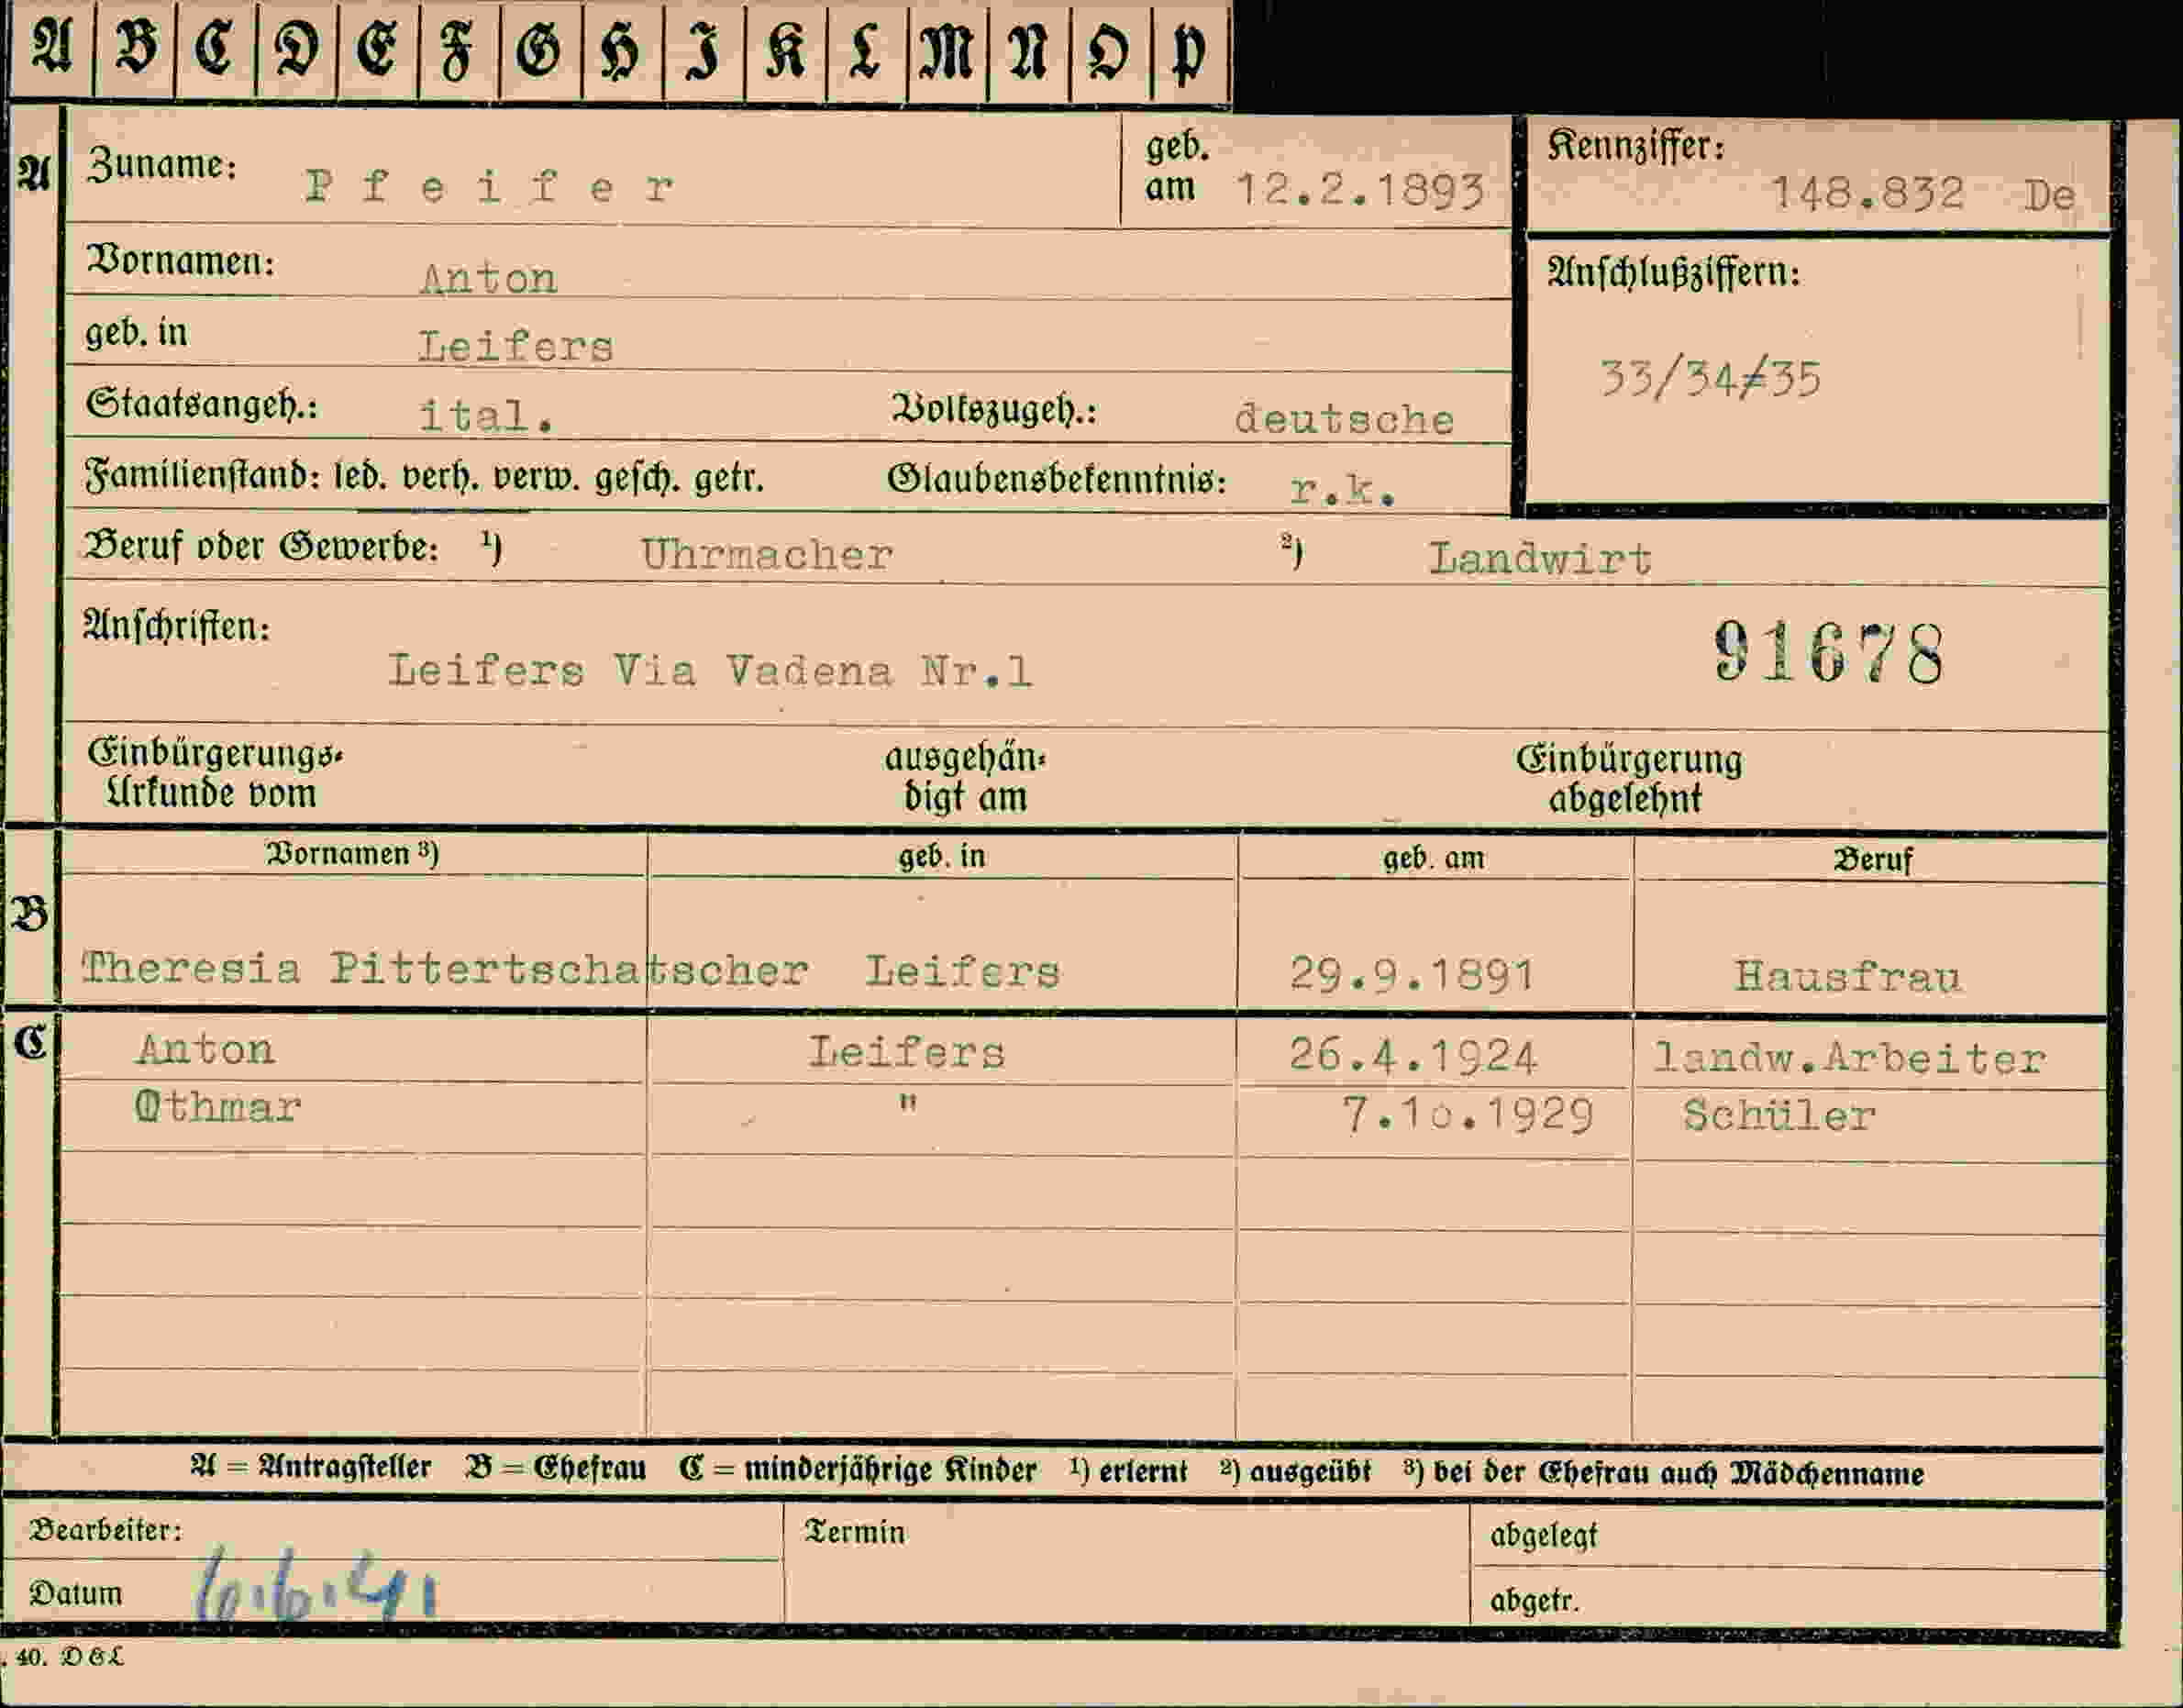 A B C D E F G H I K L M N O P
A Zuname: Pfeifer geb. am 12.2.1893 Kennziffer: 148.832 De
Vornamen: Anton Anschlußziffern:
geb. in Leifers 33/34/=35
Staatsangeh.: ital. Volkszugeh.: deutsche
Familienstand: led. verh. verw. gesch. getr. Glaubensbekenntnis: r.k.
Beruf oder Gewerbe: ¹) Uhrmacher ²) Landwirt
Anschriften: 91678
Leifers Via Vadena Nr.1
Einbürgerungs- ausgehän- Einbürgerung
Urkunde vom digt am abgelehnt
Vornamen ³) geb. in geb. am Beruf
B
Theresia Pittertschatscher Leifers 29.9.1891 Hausfrau
C Anton Leifers 26.4.1924 landw.Arbeiter
Othmar " 7.10.1929 Schüler
A = Antragsteller B = Ehefrau C = minderjährige Kinder ¹) erlernt ²) ausgeübt ³) bei der Ehefrau auch Mädchenname
Bearbeiter: Termin abgelegt
Datum 6.6.41 abgetr.
. 40. D&L